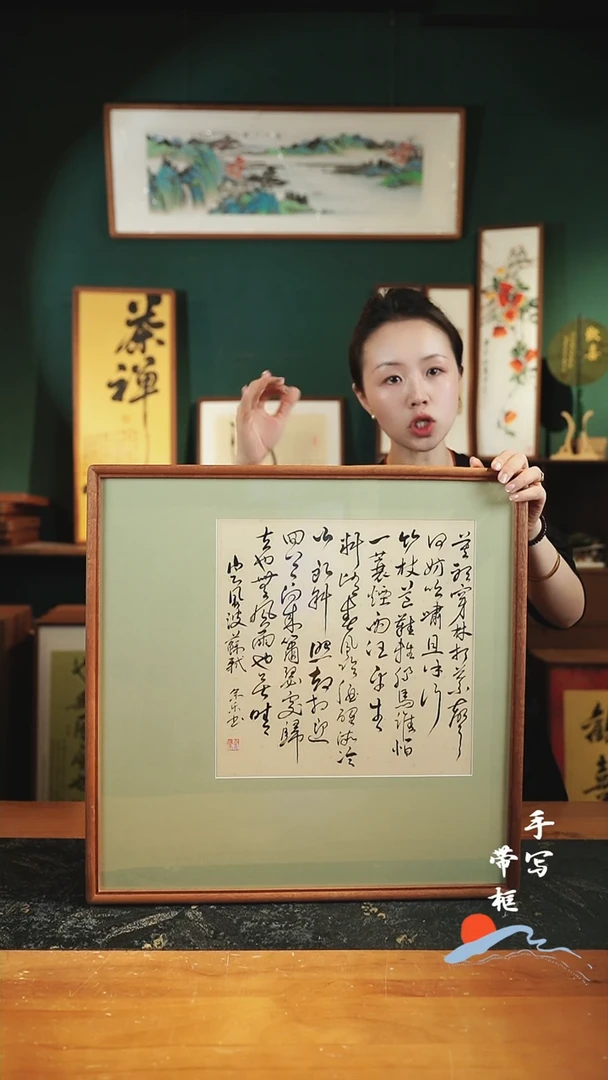 茶禪
歡喜
莫聽穿林打葉聲
何妨吟嘯且徐行
竹杖芒鞋輕勝馬誰怕
一蓑煙雨任平生
料峭春風吹酒醒微冷
山頭斜照却相迎
回首向來蕭瑟處歸
去也無風雨也無晴
定風波蘇軾
歡喜
手写
带框